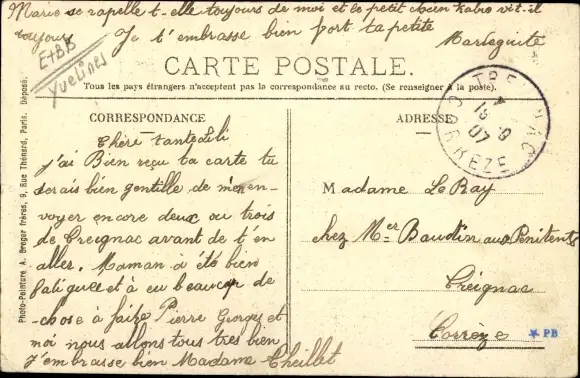 Marie se rapelle t-elle toujours de moi et le petit chein Kabro vit-il
toujours Je t'embrasse bien fort ta petite
Marleguite
E+BB
Yvelines
CARTE POSTALE.
Tous les pays étrangers n'acceptent pas la correspondance au recto. (Se renseigner à la poste).
CORRESPONDANCE
Chère tante Lili
j'ai Bien reçu ta carte tu
serais bien gentille de m'en en-
voyer encore deux ou trois
de Treignac avant de t'en
aller. Maman a été bien
fatiguée et a eu beaucoup de
chose à faire Pierre Georges et
moi nous allons tous tres bien
J'embrasse bien Madame Cheillet
ADRESSE
Madame Le Ray
chez Mer Baudin aux Pénitents
Treignac
Corrèze
TREIGNAC
CORREZE
07
PB
Photo-Peinture A. Breger frères, 9, Rue Thénard, Paris. Déposé.